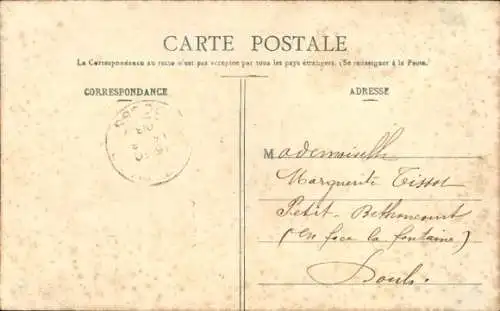 CARTE POSTALE
La Correspondance au recto n'est pas acceptée par tous les pays étrangers. (Se renseigner à la Poste.)
CORRESPONDANCE
ADRESSE
Mademoiselle
Marguerite Tissot
Petit-Bethoncourt
(En face la fontaine)
Doubs